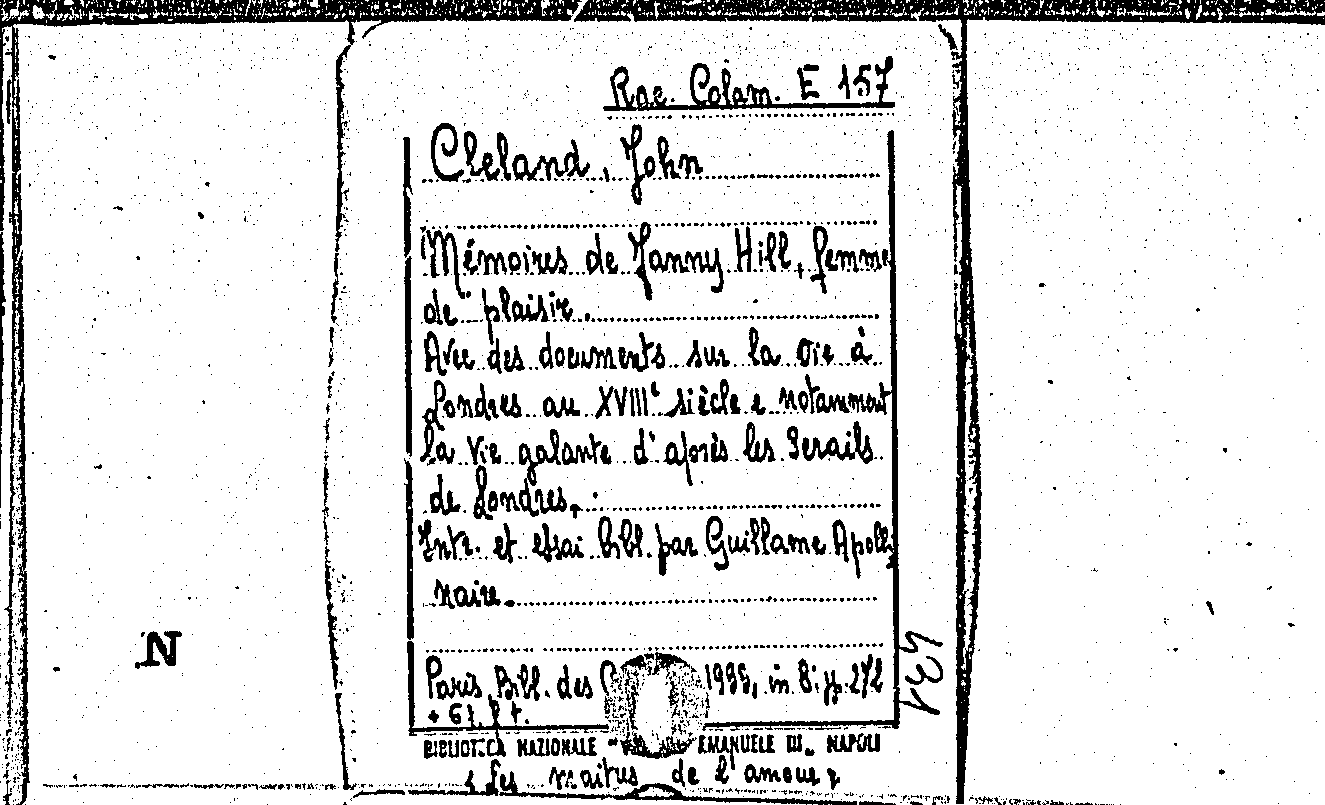 Rac. Colam. E 157
Cleland, John
Mémoires de Fanny Hill, femme
de plaisir.
Avec des documents sur la vie à
Londres au XVIIIe siècle e notamment
la vie galante d'après les Serails
de Londres.
Intr. et essai bibl. par Guillaume Apolli
naire.
Paris, Bibl. des in 8; pp. 272
+ 61.
431
BIBLIOTECA NAZIONALE " EMANUELE III„ NAPOLI
(Les maitres de l'amour)
N